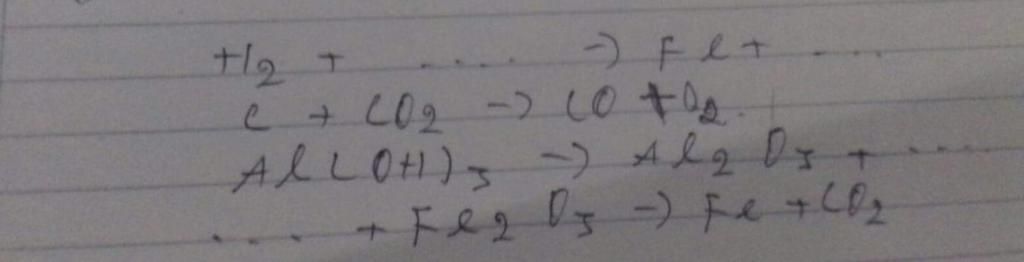 H2 + .... -> Fe + ....
C + CO2 -> CO + O2.
Al(OH)3 -> Al2O3 + ....
.... + Fe2O3 -> Fe + CO2